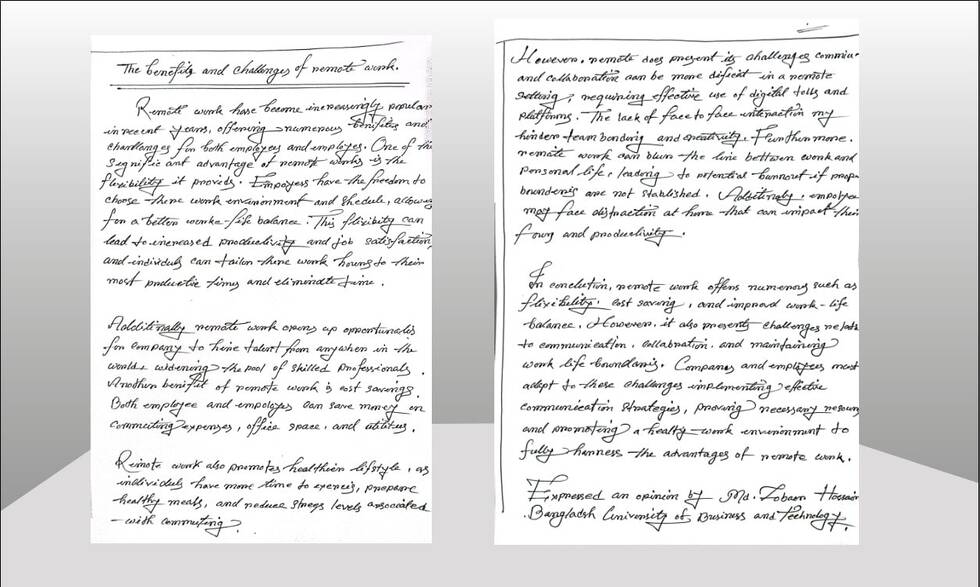 The benefits and challenges of remote work.
Remote work have become increasingly popular
in recent years, offering numerous benifites and
charllanges for both employes and employes. One of the
significant advantage of remote works is the
flixibility it provids. Employess have the freedom to
choose there work environment and shedule, allowing
for a better worke-life balance. This flixibity can
lead to increased productivity and job satisfaction,
and individuls can tailor there work hours to their
most productive times and eliminate time.
Additinally remote work opens up opportunaties
for company to hire talent from anywher in the
world, widening the pool of skilled professionals.
Another benifit of remote work is cost savings.
Both employee and employes can save money on
commuting expenses, office space, and utilitus.
Remote work also promotes healthier lifstyle, as
individuls have more time to exercis, prepare
healthy meals, and reduce stress levels associated
with commuting.
However, remote does present its challenges commun
and collaboration can be more dificint in a remote
setting, requiring effective use of digital tolls and
platforms. The lack of face to face interaction my
hinder team bonding and creativity. Furthermore.
remote work can blur the line bettwen work and
personal life, leading to potential burnout if prop
bounderis are not stablished. Additinaly, employee
may face distraction at home that can impact their
and productivity.
In conclution, remote work offers numerous such as
flixibility, cost saving, and improvd work-life
balance. However, it also presents challenges related
to communication, collabration, and maintaining
work life boundaris. Companes and employes must
adapt to these challenges implementing effective
communication strategies, proving necessary resour
and promoting a healty work environment to
fully harness the advantages of remote work.
Expressed an opinion by Md. Hossain
Bangladsh University of Business and Technology.